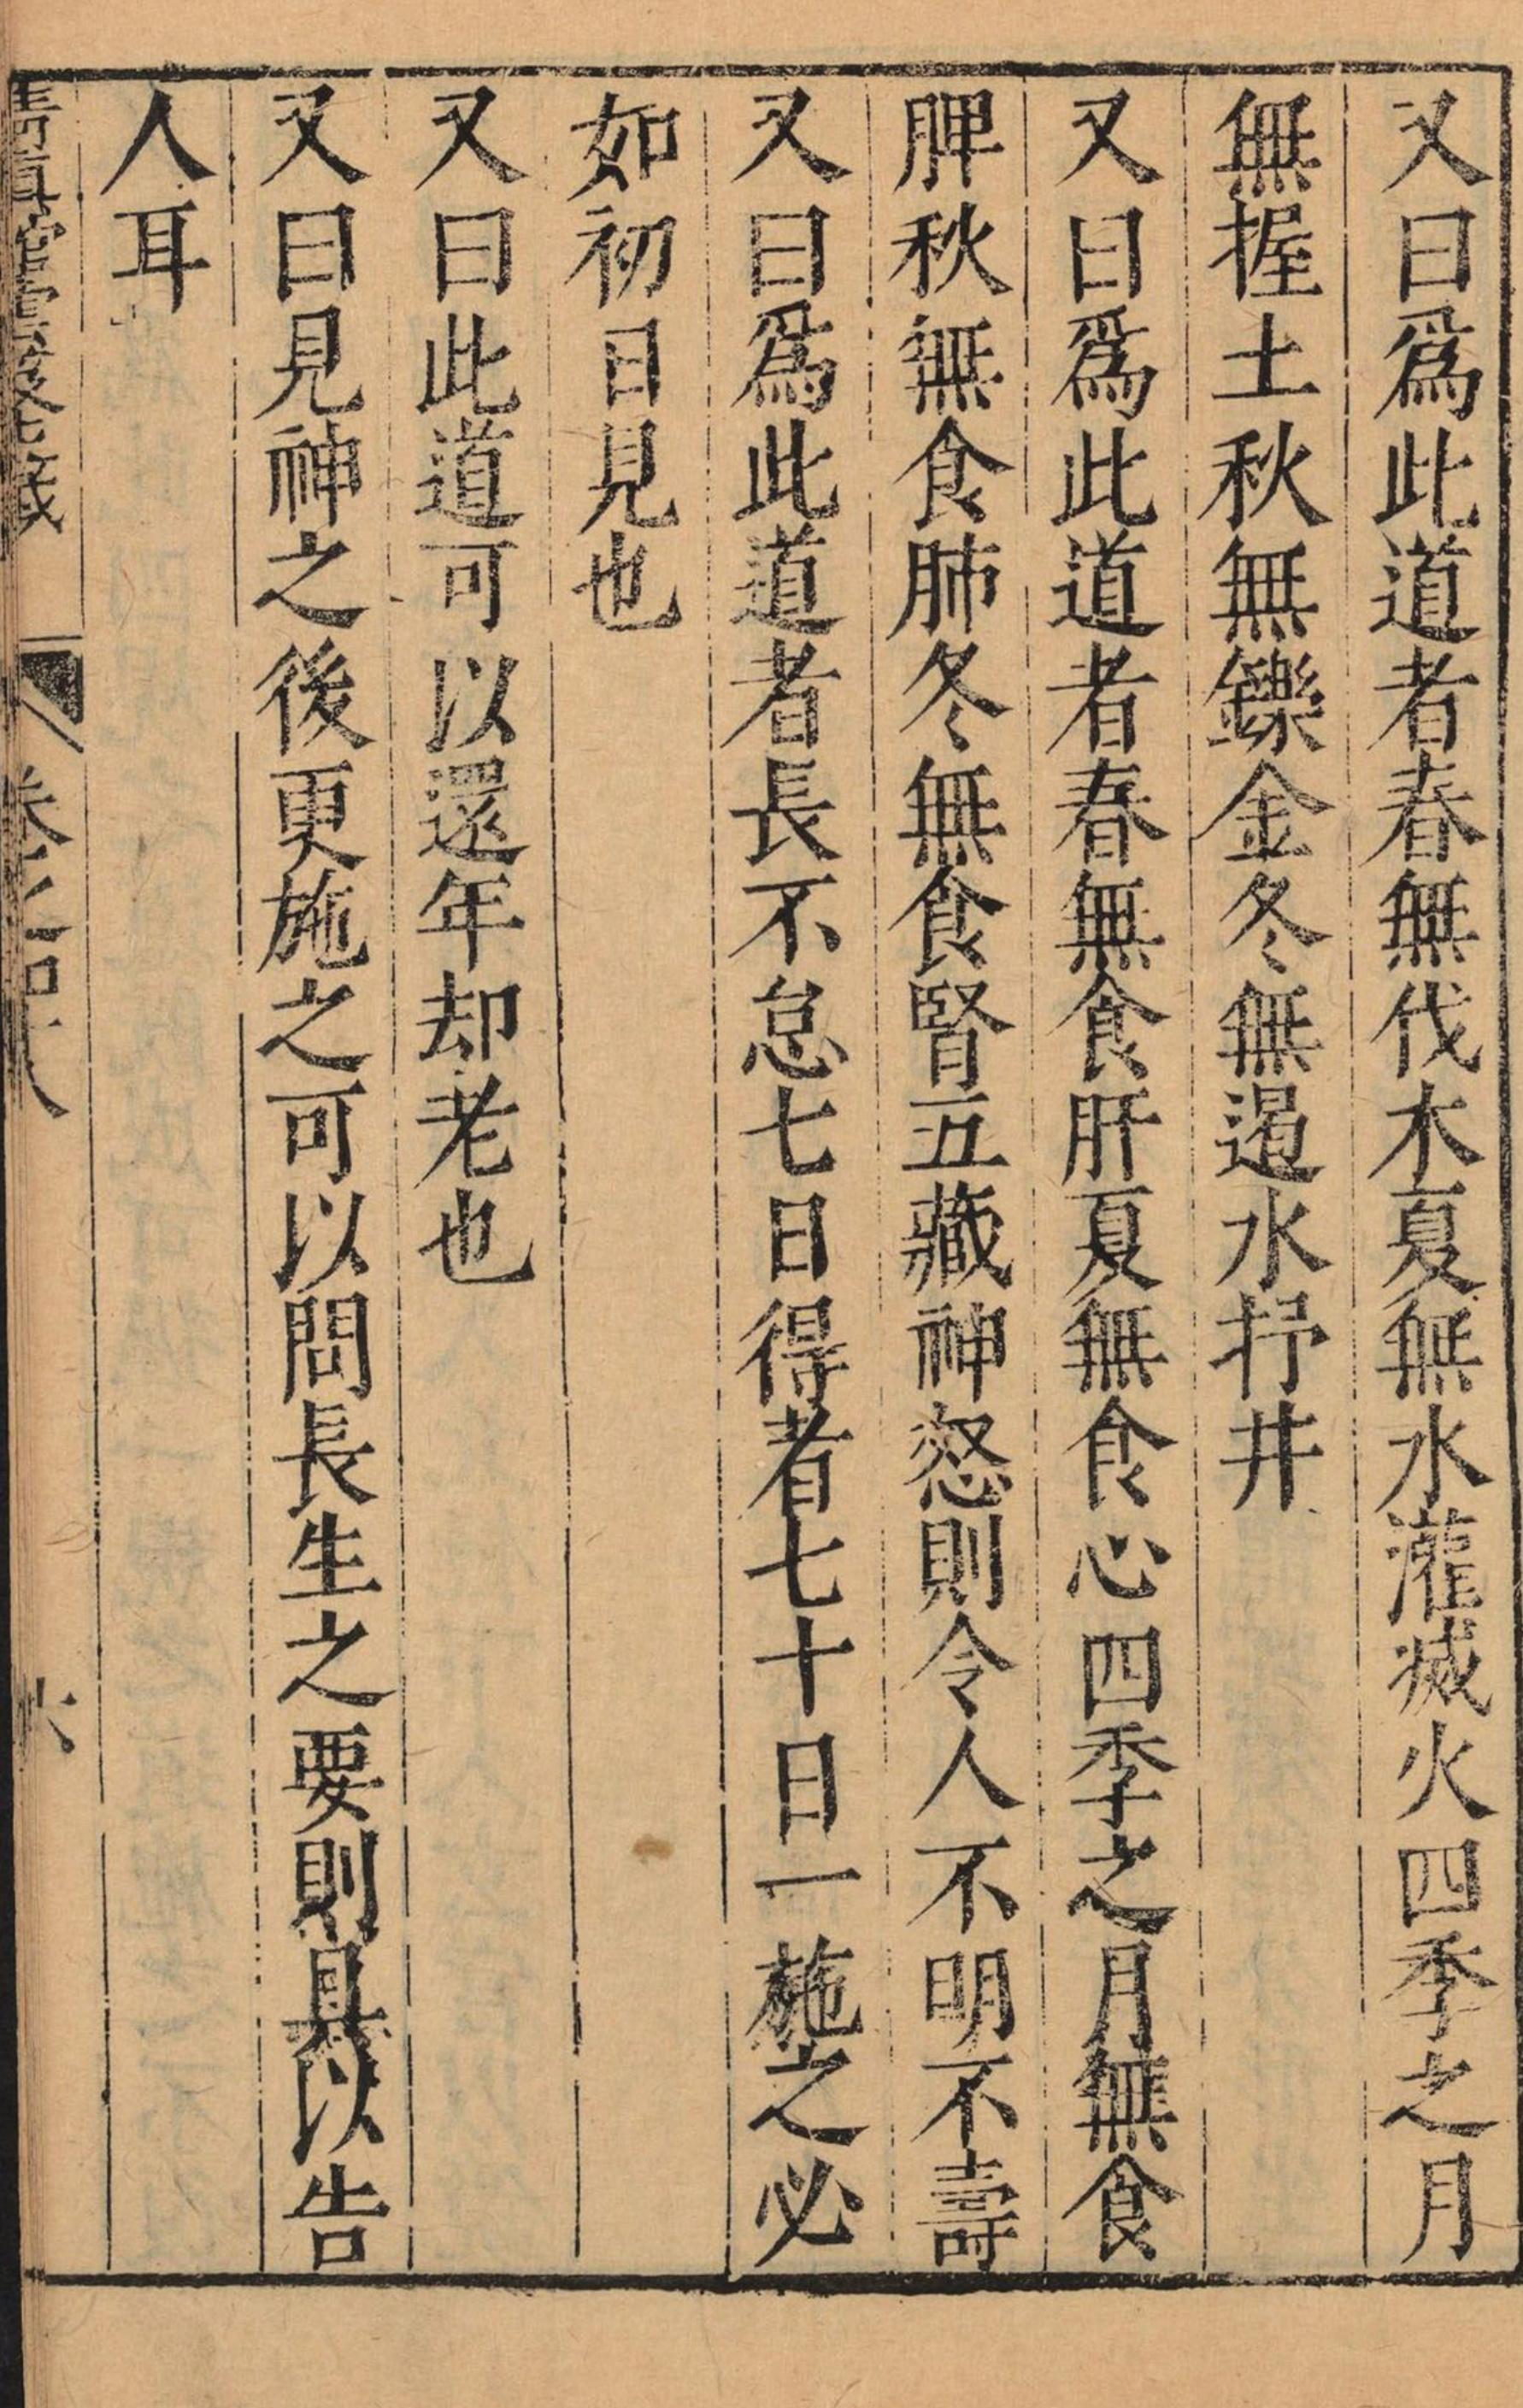 又曰爲此道者春無伐木夏無水灌滅火四季之月
無握土秋無鑠金冬無遏水抒井
又曰爲此道者春無食肝夏無食心四季之月無食
脾秋無食肺冬無食腎五藏神怒則令人不明不壽
又曰爲此道者長不怠七日得者七十日一施之必
如初目見也
又曰此道可以還年却老也
又曰見神之後更施之可以問長生之要則具以告
人耳